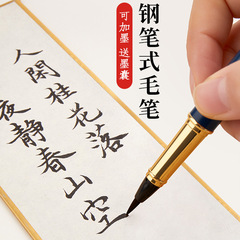 钢笔式毛笔
可加墨 送墨囊
人闲桂花落
夜静春山空